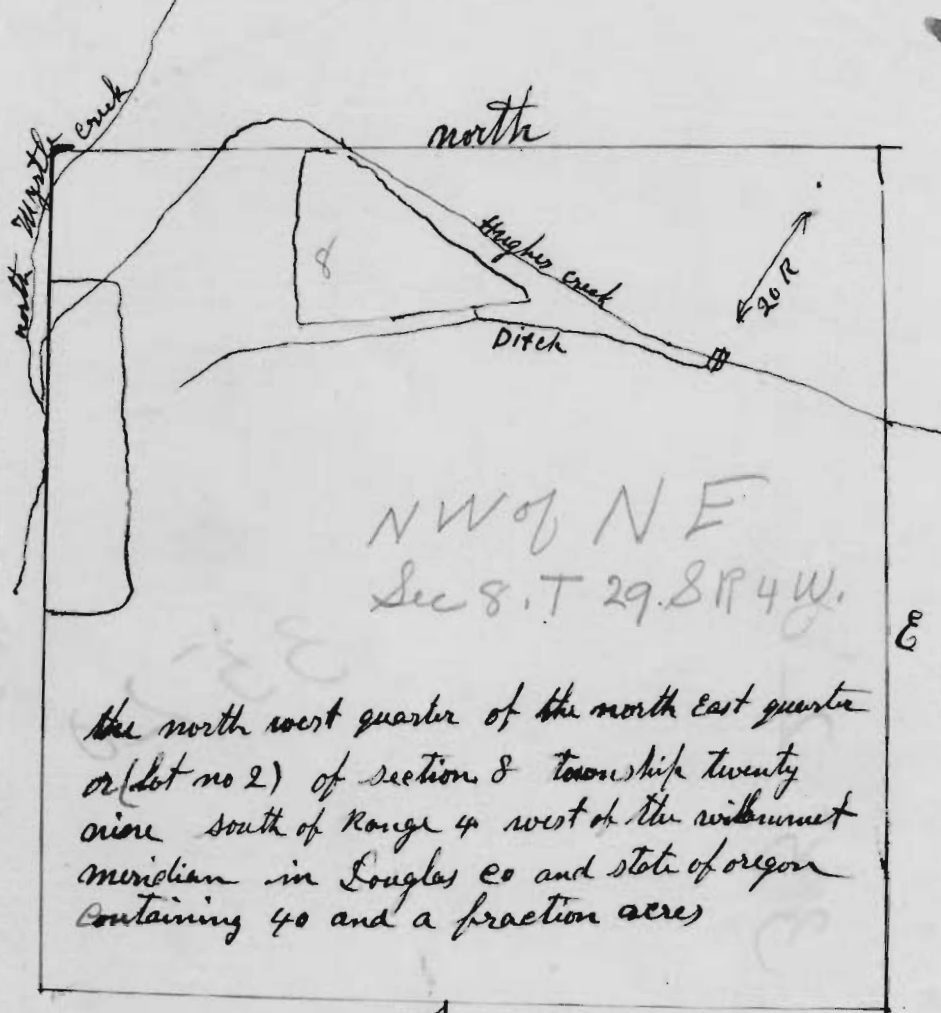 north
north Myrtle creek
Hughes creek
20 R
8
Ditch
NW of NE
Sec 8. T 29. S R 4 W.
E
the north west quarter of the north East quarter
or (Lot no 2) of section 8 township twenty
nine south of Range 4 west of the
meridian in Douglas co and state of oregon
containing 40 and a fraction acres